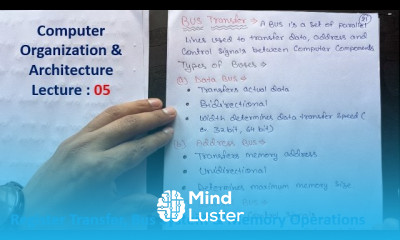 Computer
Organization &
Architecture
Lecture : 05
31
BUS Transfer → A BUS is a set of parallel
lines used to transfer data, address and
control signals between computer components
Types of Buses →
(1) Data Bus →
• Transfers actual data
• Bidirectional
• Width determines data transfer speed (
32 bit, 64 bit)
Address Bus →
• Transfers memory address
• Unidirectional
• Determines maximum memory size
Mind
Luster
Memory Operations